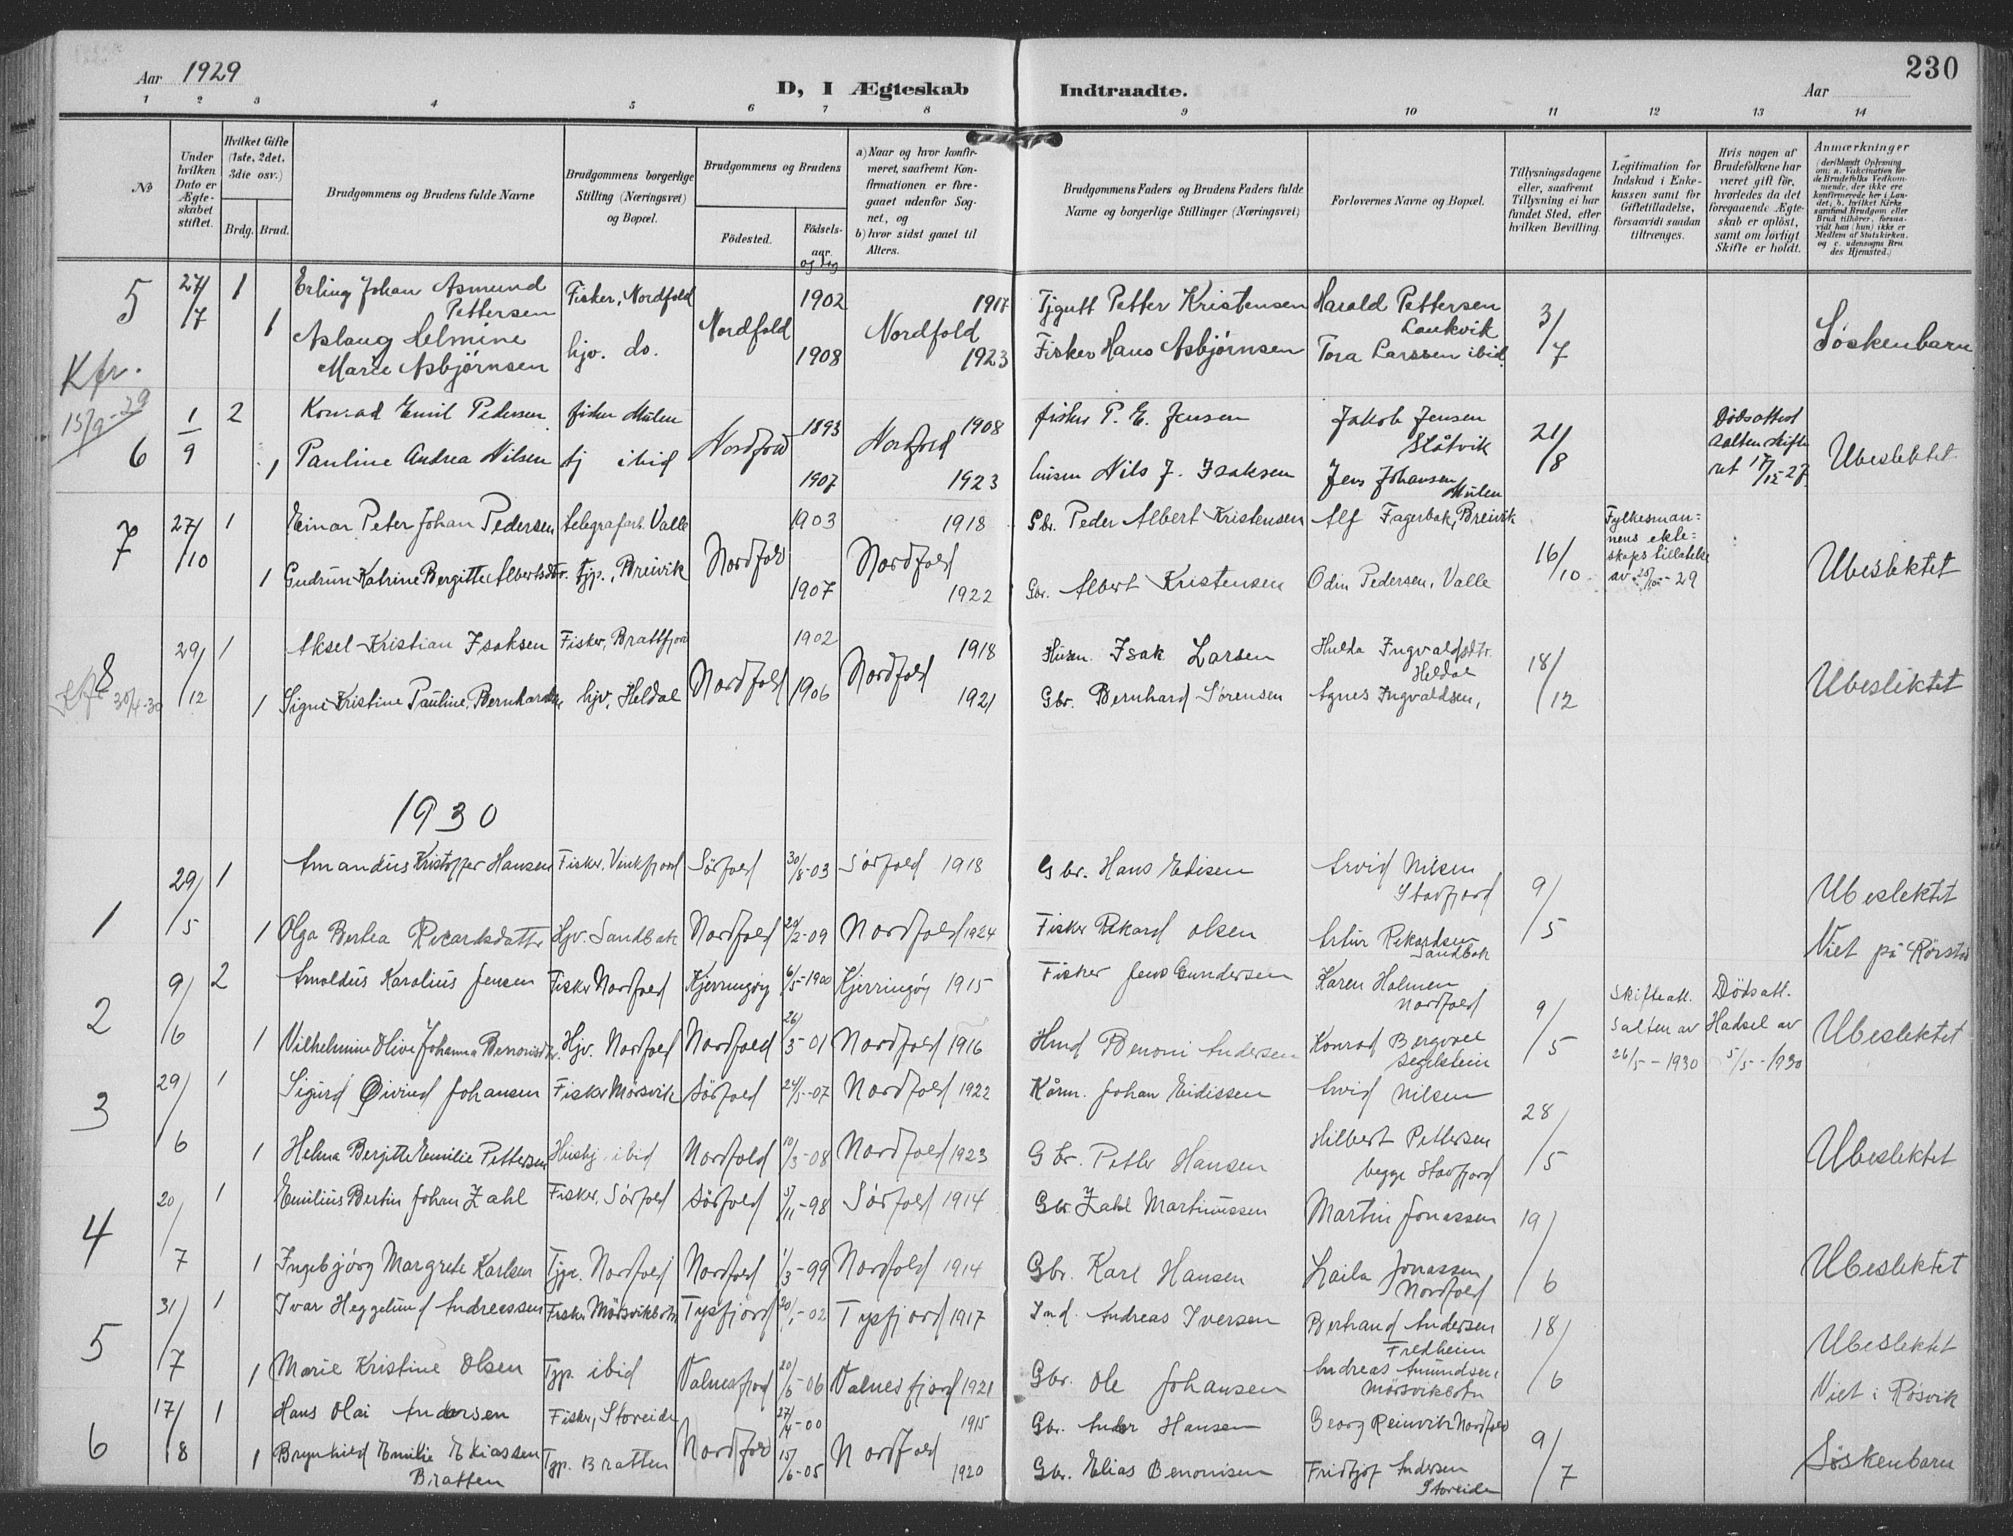 Aar 1929
D, I Ægteskab Indtraadte.
230
Aar
1 2 3 4 5 6 7 8 9 10 11 12 13 14
No
Under hvilken Dato er Ægteskabet stiftet.
Hvilket Gifte (1ste, 2det, 3die osv.)
Brdg. Brud.
Brudgommens og Brudens fulde Navne
Brudgommens borgerlige Stilling (Næringsvei) og Bopæl.
Brudgommens og Brudens
Födested.
Födselsaar og dag
a) Naar og hvor konfirmeret, saafremt Konfirmationen er foregaaet udenfor Sognet, og
b) hvor sidst gaaet til Alters.
Brudgommens Faders og Brudens Faders fulde Navne og borgerlige Stillinger (Næringsvei)
Forlovernes Navne og Bopæl.
Tillysningsdagene eller, saafremt Tillysning ei har fundet Sted, efter hvilken Bevilling.
Legitimation for Indskud i Enkekassen samt for Giftetilladelse, forsaavidt saadan tiltrænges.
Hvis nogen af Brudefolkene har været gift för, hvorledes da det foregaaende Ægteskab er oplöst, samt om lovligt Skifte er holdt.
Anmærkninger
(deriblandt Oplysning om: a. Vakcination for de Brudefolks Vedkommende, der ikke ere konfirmerede her i Landet, b. hvilket Kirkesamfund Brudgom eller Brud tilhörer, forsaavidt han (hun) ikke er Medlem af Statskirken, og c. udensogns Brudes Hjemsted.)
5 27/7 1 Erling Johan Asmund Pettersen Fisker, Nordfold Nordfold 1902 Nordfold 1917 Tjgutt Petter Kristensen Harald Pettersen Laukvik 3/7 Søskenbarn
1 Aslaug Helmine Marie Asbjørnsen hjv. do. 1908 1923 Fisker Hans Asbjørnsen Tora Larssen ibid.
Kfr. 15/9-29
6 1/9 2 Konrad Emil Pedersen fisker Mulen Nordfold 1893 Nordfold 1908 fisker P. E. Jensen Jakob Jensen Slåtvik 21/8 Dødsattest Salten skifteret 17/12-27 Ubeslektet
1 Pauline Andrea Nilsen tj ibid 1907 1923 husm Nils J. Isaksen Jens Johansen Mulen
7 27/10 1 Einar Peter Johan Pedersen telegrafarb. Valle Nordfold 1903 Nordfold 1918 Gbr. Peder Albert Kristensen Alf Fagerbak, Breivik 16/10 Fylkesmannens ekteskapstillatelse av 25/10-29 Ubeslektet
1 Gudrun Katrine Bergitte Albertsdtr. tjp., Breivik 1907 1922 Gbr. Albert Kristensen Odin Pedersen, Valle
8 29/12 1 Aksel Kristian Isaksen Fisker, Brattfjord Nordfold 1902 Nordfold 1918 Husm. Isak Larsen Hulda Ingvaldsdtr. Heldal 18/12 Ubeslektet
Kfr 30/4-30
1 Signe Kristine Pauline Bernhardsdtr. hjv, Heldal 1906 1921 Gbr. Bernhard Sørensen Agnes Ingvaldsen,
1930
1 29/5 1 Amandus Kristoffer Hansen Fisker, Vinkfjord Sørfold 30/8-03 Sørfold 1918 Gbr. Hans Edisen Arvid Nilsen Stavfjord 9/5 Ubeslektet
1 Olga Bertea Ricardsdatter Hjv. Sandbak Nordfold 20/2-09 Nordfold 1924 Fisker Rikard Olsen Artur Rikardsen Sandbak Viet på Rørstad
2 9/6 2 Arnoldus Karolius Jensen Fisker Nordfold Kjerringøy 6/5-1900 Kjerringøy 1915 Fisker Jens Gundersen Karen Holmen Nordfold 9/5 Skifteatt. Salten av 26/5-1930 Dødsatt. Hadsel av 5/5-1930 Ubeslektet
1 Vilhelmine Olive Johanna Benonisdtr. Hjv. Nordfold Nordfold 26/3-01 Nordfold 1916 Hmd Benoni Andersen Konrad Segelstein
3 29/6 1 Sigurd Øivind Johansen Fisker Mørsvik Sørfold 24/5-07 Nordfold 1922 Kårm. Johan Eidissen Arvid Nilsen 28/5 Ubeslektet
1 Helma Bergitte Emilie Pettersen Hushj. ibid Nordfold 10/3-08 Nordfold 1923 Gbr. Petter Hansen Hilbert Pettersen begge Stavfjord
4 20/7 1 Emilius Bertin Johan Zahl Fisker, Sørfold Sørfold 3/11-98 Sørfold 1914 Gbr. Zahl Martinussen Martin Jonassen 19/6 Ubeslektet
1 Ingebjørg Margrete Karlsen Tjp. Nordfold Nordfold 1/3-99 Nordfold 1914 Gbr. Karl Hansen Laila Jonassen Nordfold
5 31/7 1 Ivar Heggelund Andreassen Fisker Mørsvikbotn Tysfjord 20/1-02 Tysfjord 1917 Imd. Andreas Iversen Bertrand Andersen Fredheim 18/6 Ubeslektet
1 Marie Kristine Olsen Tjp. ibid Valnesfjord 20/5-06 Valnesfjord 1921 Gbr. Ole Johansen Andreas Amundsen, Mørsvikbotn Viet i Røsvik
6 17/8 1 Hans Olai Andersen Fisker, Storeide Nordfold 27/4-00 Nordfold 1915 Gbr. Ander Hansen Georg Reinvik Nordfold 9/7 Søskenbarn
1 Brynhild Emilie Eliassen Bratten Tjp. Bratten 15/6-05 1920 Gbr. Elias Benonisen Fridtjof Andersen Storeide